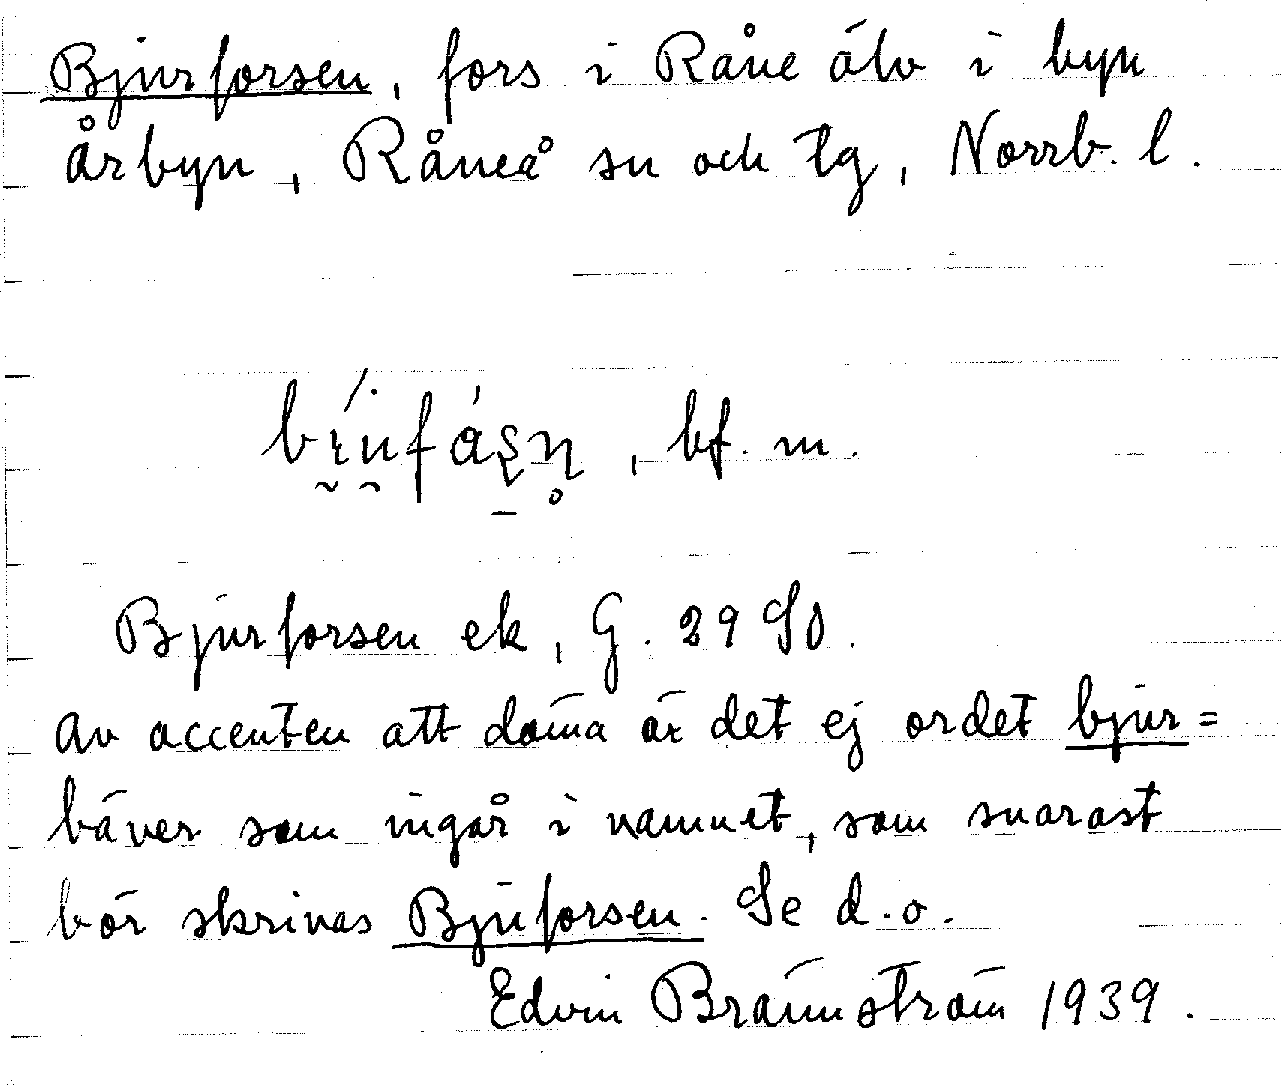 Bjurforsen, fors i Råne älv i byn
Årbyn, Råneå sn och tg, Norrb. l.
, bf. m.
Bjurforsen ek, G. 29 SO.
Av accenten att döma är det ej ordet bjur=
bäver som ingår i namnet, som snarast
bör skrivas Bjuforsen. Se d.o.
Edvin Brännström 1939.